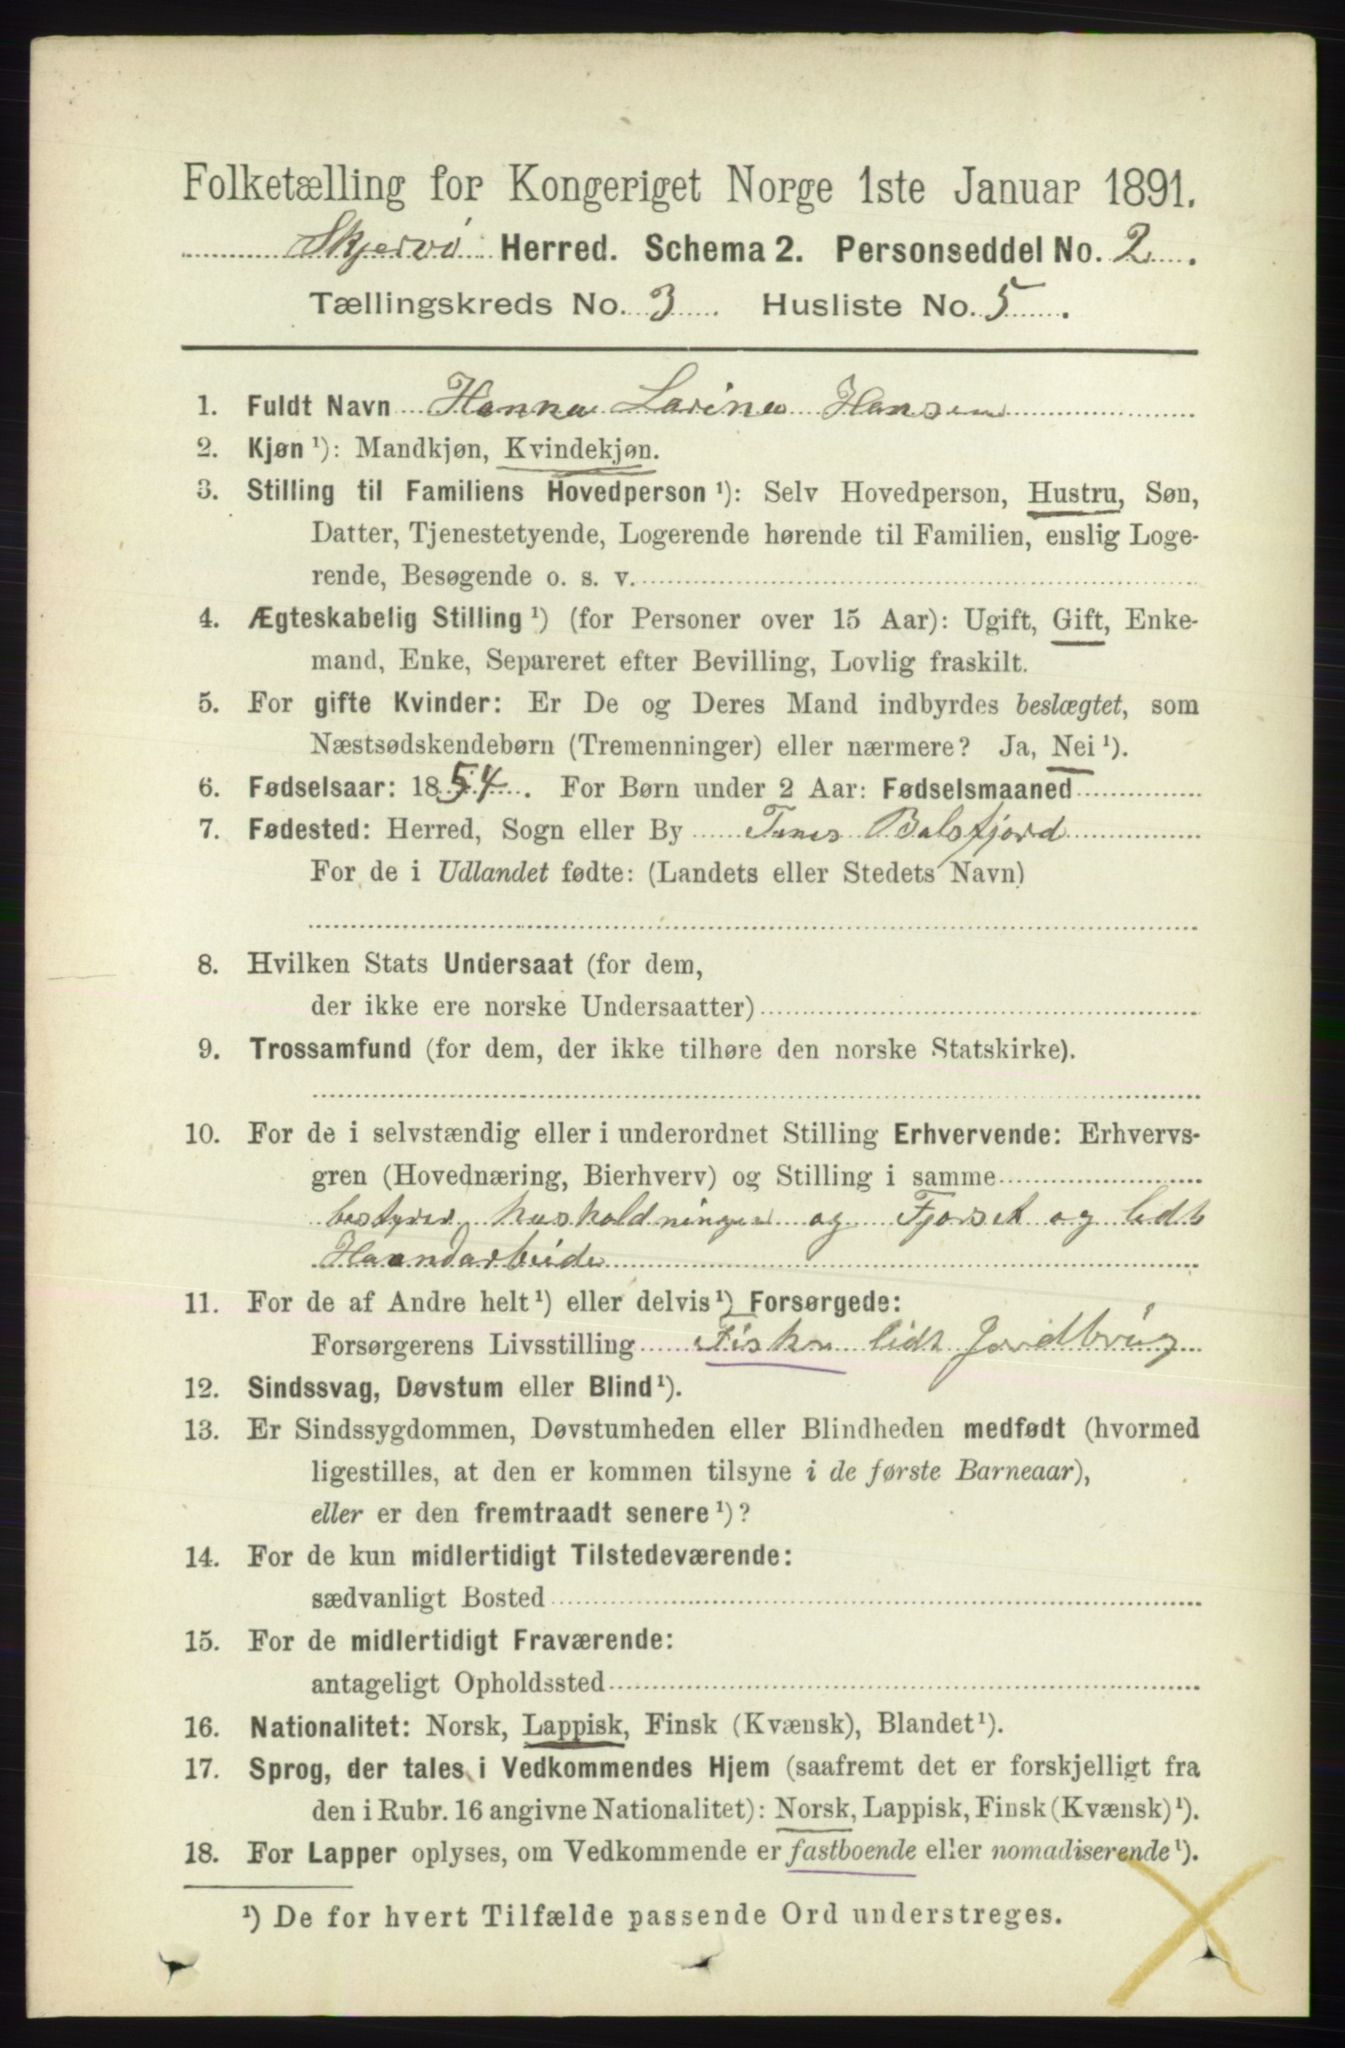 Folketælling for Kongeriget Norge 1ste Januar 1891.
Skjervö Herred. Schema 2. Personseddel No. 2.
Tællingskreds No. 3 Husliste No. 5.
1. Fuldt Navn Hanna Larina Hansen
2. Kjøn ¹): Mandkjøn, Kvindekjøn.
3. Stilling til Familiens Hovedperson ¹): Selv Hovedperson, Hustru, Søn,
Datter, Tjenestetyende, Logerende hørende til Familien, enslig Loge-
rende, Besøgende o. s. v.
4. Ægteskabelig Stilling ¹) (for Personer over 15 Aar): Ugift, Gift, Enke-
mand, Enke, Separeret efter Bevilling, Lovlig fraskilt.
5. For gifte Kvinder: Er De og Deres Mand indbyrdes beslægtet, som
Næstsødskendebørn (Tremenninger) eller nærmere? Ja, Nei ¹).
6. Fødselsaar: 1854. For Børn under 2 Aar: Fødselsmaaned
7. Fødested: Herred, Sogn eller By Balsfjord
For de i Udlandet fødte: (Landets eller Stedets Navn)
8. Hvilken Stats Undersaat (for dem,
der ikke ere norske Undersaatter)
9. Trossamfund (for dem, der ikke tilhøre den norske Statskirke).
10. For de i selvstændig eller i underordnet Stilling Erhvervende: Erhvervs-
gren (Hovednæring, Bierhverv) og Stilling i samme
bestyrer husholdningen og Fjøset og lidt
Haandarbeide
11. For de af Andre helt ¹) eller delvis ¹) Forsørgede:
Forsørgerens Livsstilling Fisker lidt Jordbrug
12. Sindssvag, Døvstum eller Blind ¹).
13. Er Sindssygdommen, Døvstumheden eller Blindheden medfødt (hvormed
ligestilles, at den er kommen tilsyne i de første Barneaar),
eller er den fremtraadt senere ¹)?
14. For de kun midlertidigt Tilstedeværende:
sædvanligt Bosted
15. For de midlertidigt Fraværende:
antageligt Opholdssted
16. Nationalitet: Norsk, Lappisk, Finsk (Kvænsk), Blandet ¹).
17. Sprog, der tales i Vedkommendes Hjem (saafremt det er forskjelligt fra
den i Rubr. 16 angivne Nationalitet): Norsk, Lappisk, Finsk (Kvænsk) ¹).
18. For Lapper oplyses, om Vedkommende er fastboende eller nomadiserende ¹).
¹) De for hvert Tilfælde passende Ord understreges.